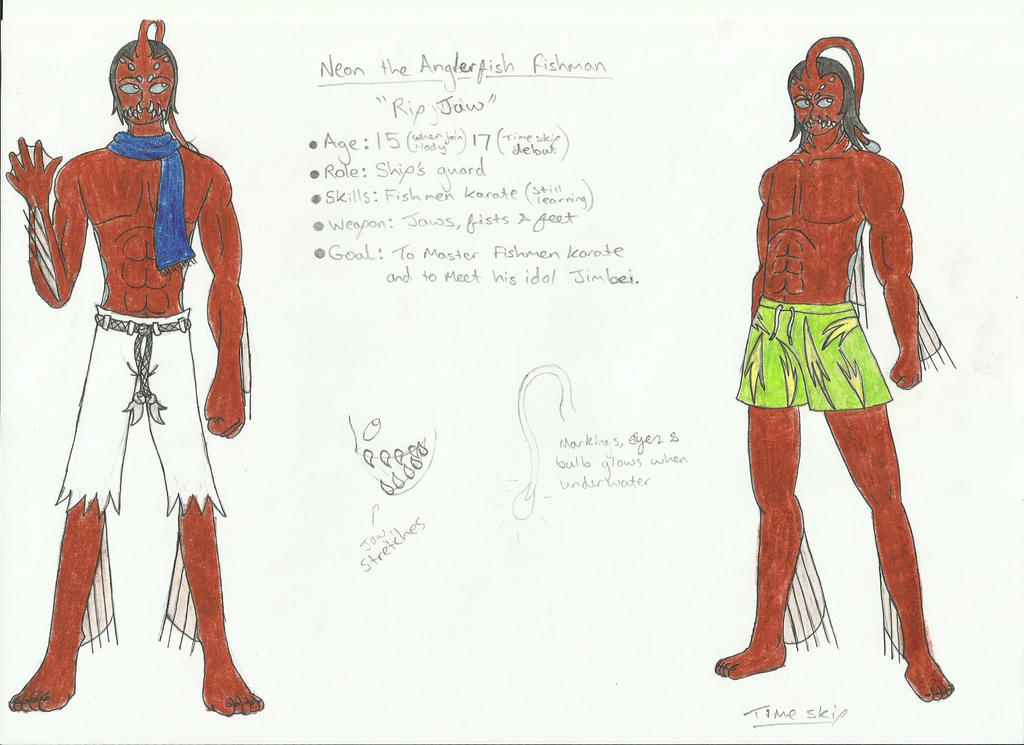 Neon the Anglerfish Fishman
"Rip Jaw"
Age: 15 (when join Nody) 17 (Time skip debut)
Role: Ship's guard
Skills: Fishmen karate (still learning)
Weapon: Jaws, fists & feet
Goal: To Master Fishmen karate
and to Meet his idol Jimbei.
Markings, eyes &
bulb glows when
underwater
Jaw
stretches
Time skip